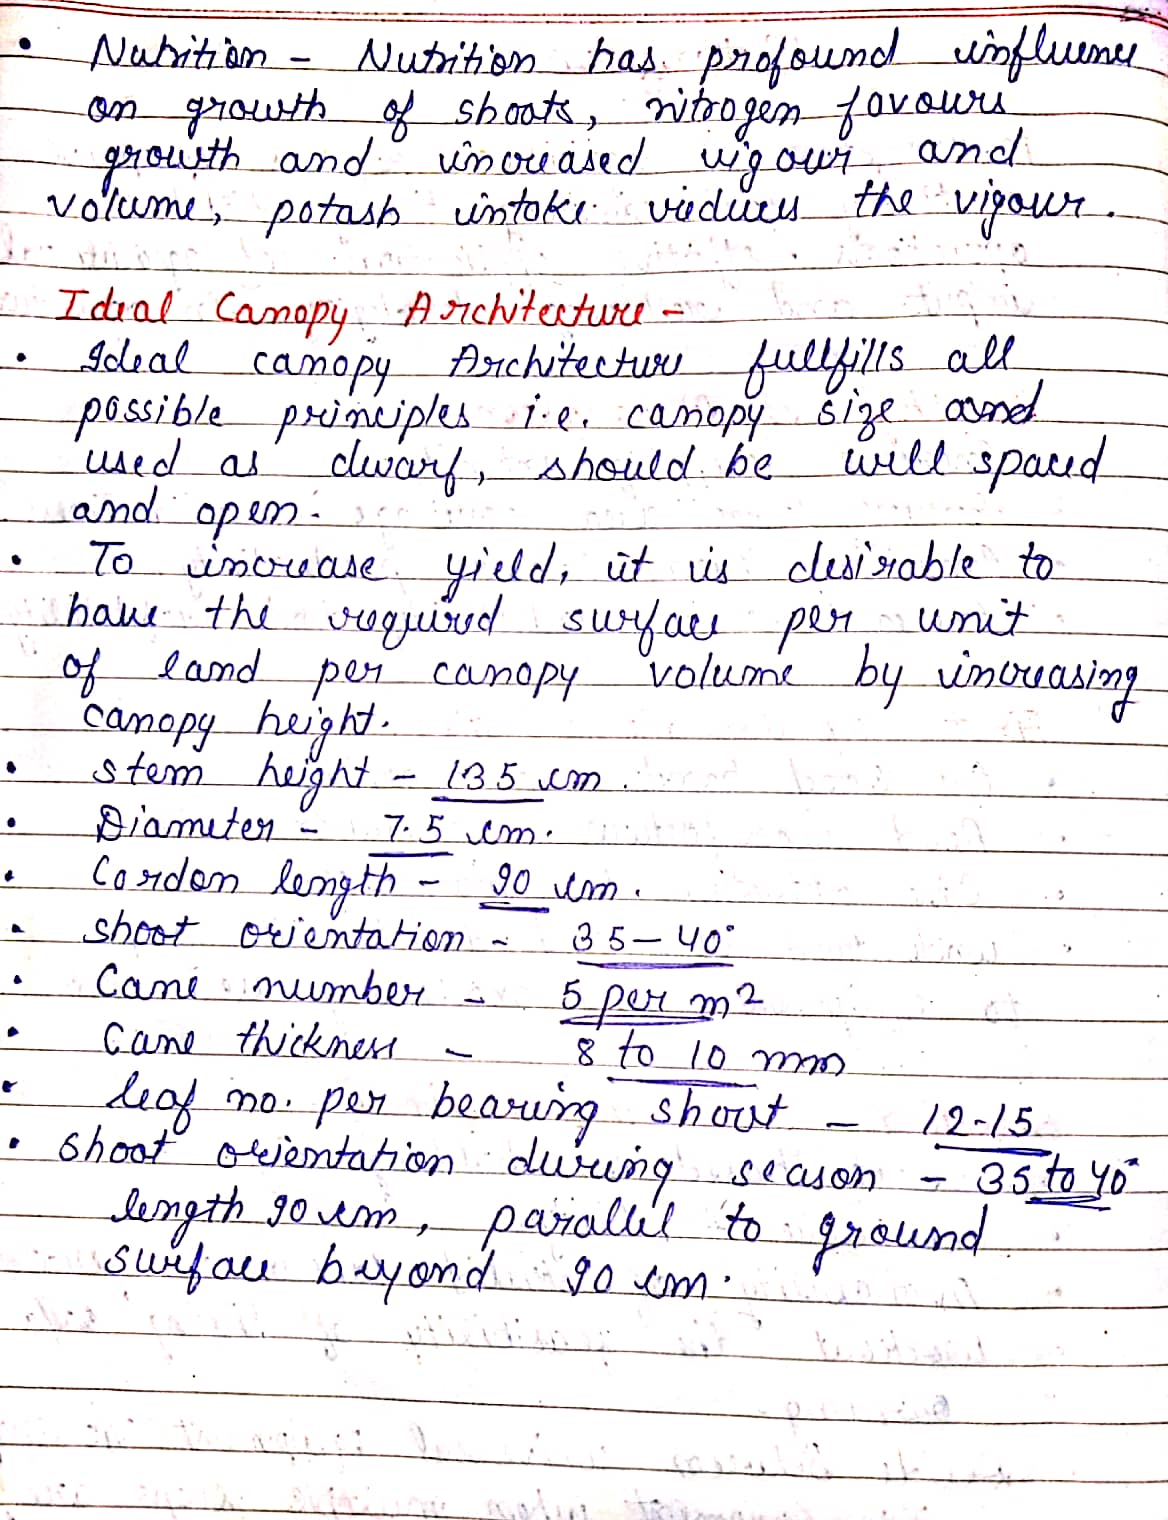 • Nutrition - Nutrition has profound influence
on growth of shoots, nitrogen favours
growth and increased vigour and
volume, potash intake reduces the vigour.
Ideal Canopy Architecture -
• Ideal canopy Architecture fullfills all
possible principles i.e. canopy size and
used as dwarf, should be well spaced
and open.
• To increase yield, it is desirable to
have the required surface per unit
of land per canopy volume by increasing
canopy height.
• stem height - 135 cm.
• Diameter - 7.5 cm.
• Cordon length - 90 cm.
• shoot orientation - 35-40°
• Cane number - 5 per m2
• Cane thickness - 8 to 10 mm
• leaf no. per bearing shoot - 12-15
• shoot orientation during season - 35 to 40°
length 90 cm, parallel to ground
surface beyond 90 cm.